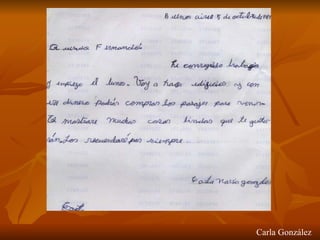 Buenos aires 5 de octubre de
Querida Fernando:
He conseguido trabajo
y empiezo el lunes. Voy a hacer edificios y con
ese dinero podrán comprar los pasajes para venir.
Te mostrare muchas cosas lindas que te gusta
rán. Los recordaré por siempre.
Carla María gonzalez
Carla González